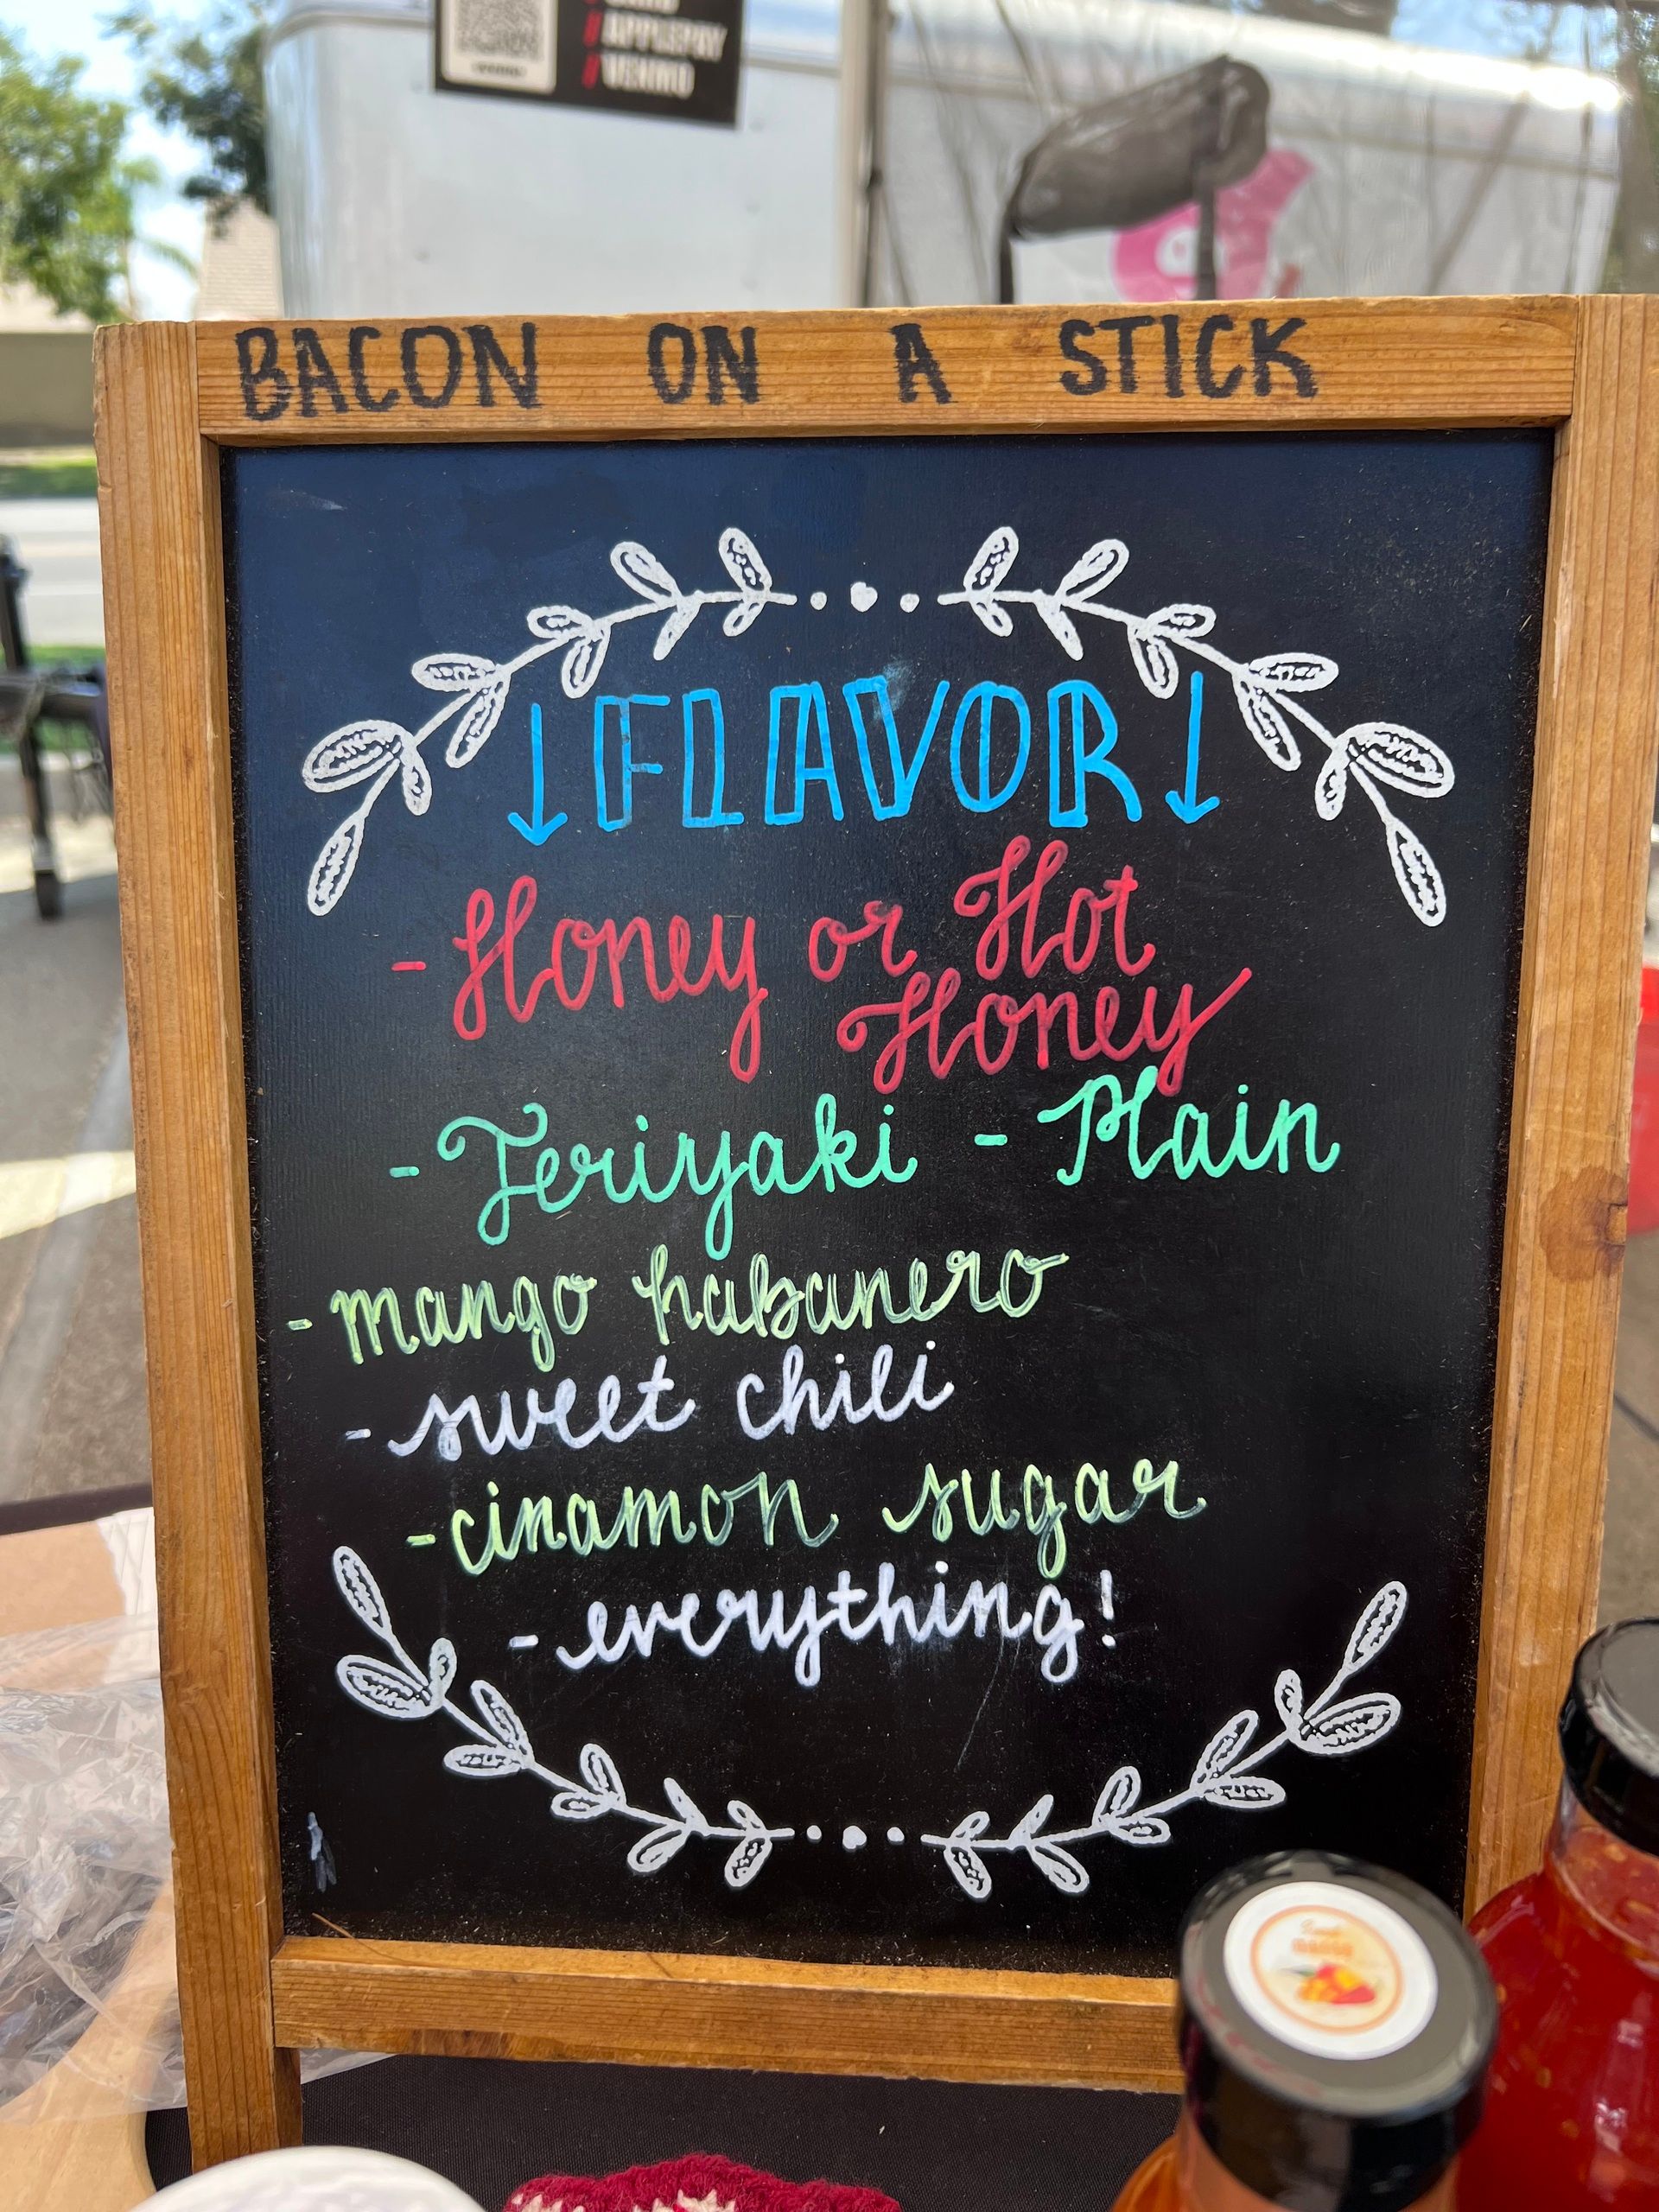 //APPLEPAY
//VENMO
BACON ON A STICK
↓FLAVOR↓
-Honey or Hot
Honey
-Teriyaki -Plain
-mango habanero
-sweet chili
-cinamon sugar
-everything!